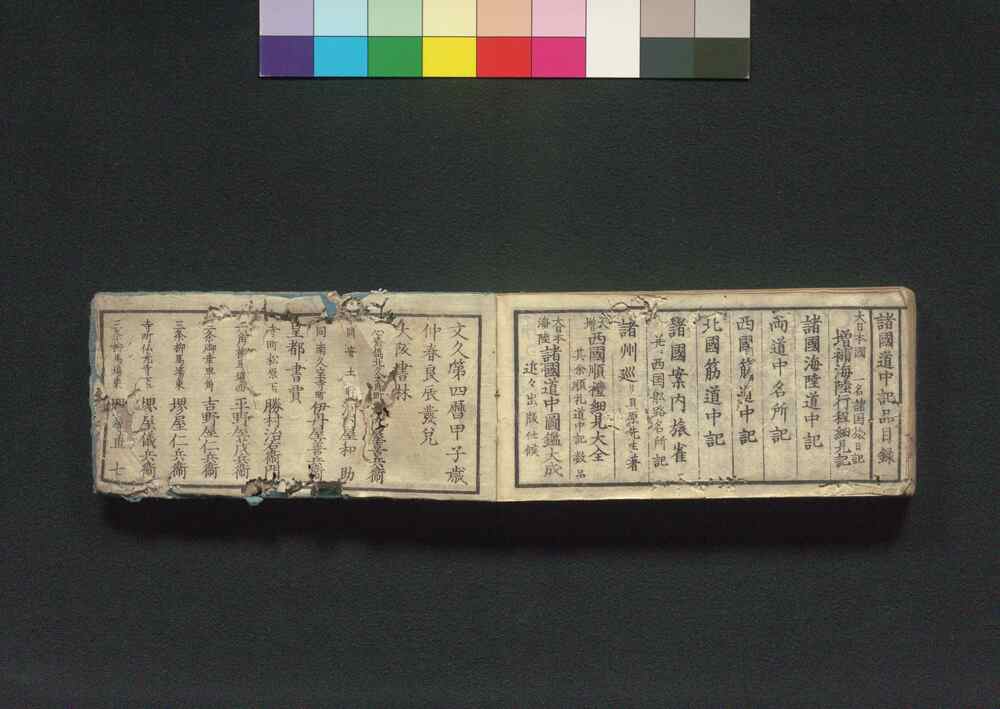 諸國道中記品目録
大日本國 一名諸国旅日記
増補海陸行程細見記
諸國海陸道中記
両道中名所記
西國筋道中記
北國筋道中記
諸國案内旅雀
西国船路名所記
諸州巡り 貝原先生著
西國順禮細見大全
其余順礼道中記数品
大日本海陸 諸國道中圖鑑大成
近々出版仕候
文久第四曆甲子歳
仲春良辰發兌
大阪書林
河内屋和助
皇都書賈
寺町松原下 勝村治右衛門
平野屋茂兵衞
吉野屋仁兵衞
三条御幸町東 堺屋仁兵衞
寺町仏光寺下 堺屋儀兵衞
七